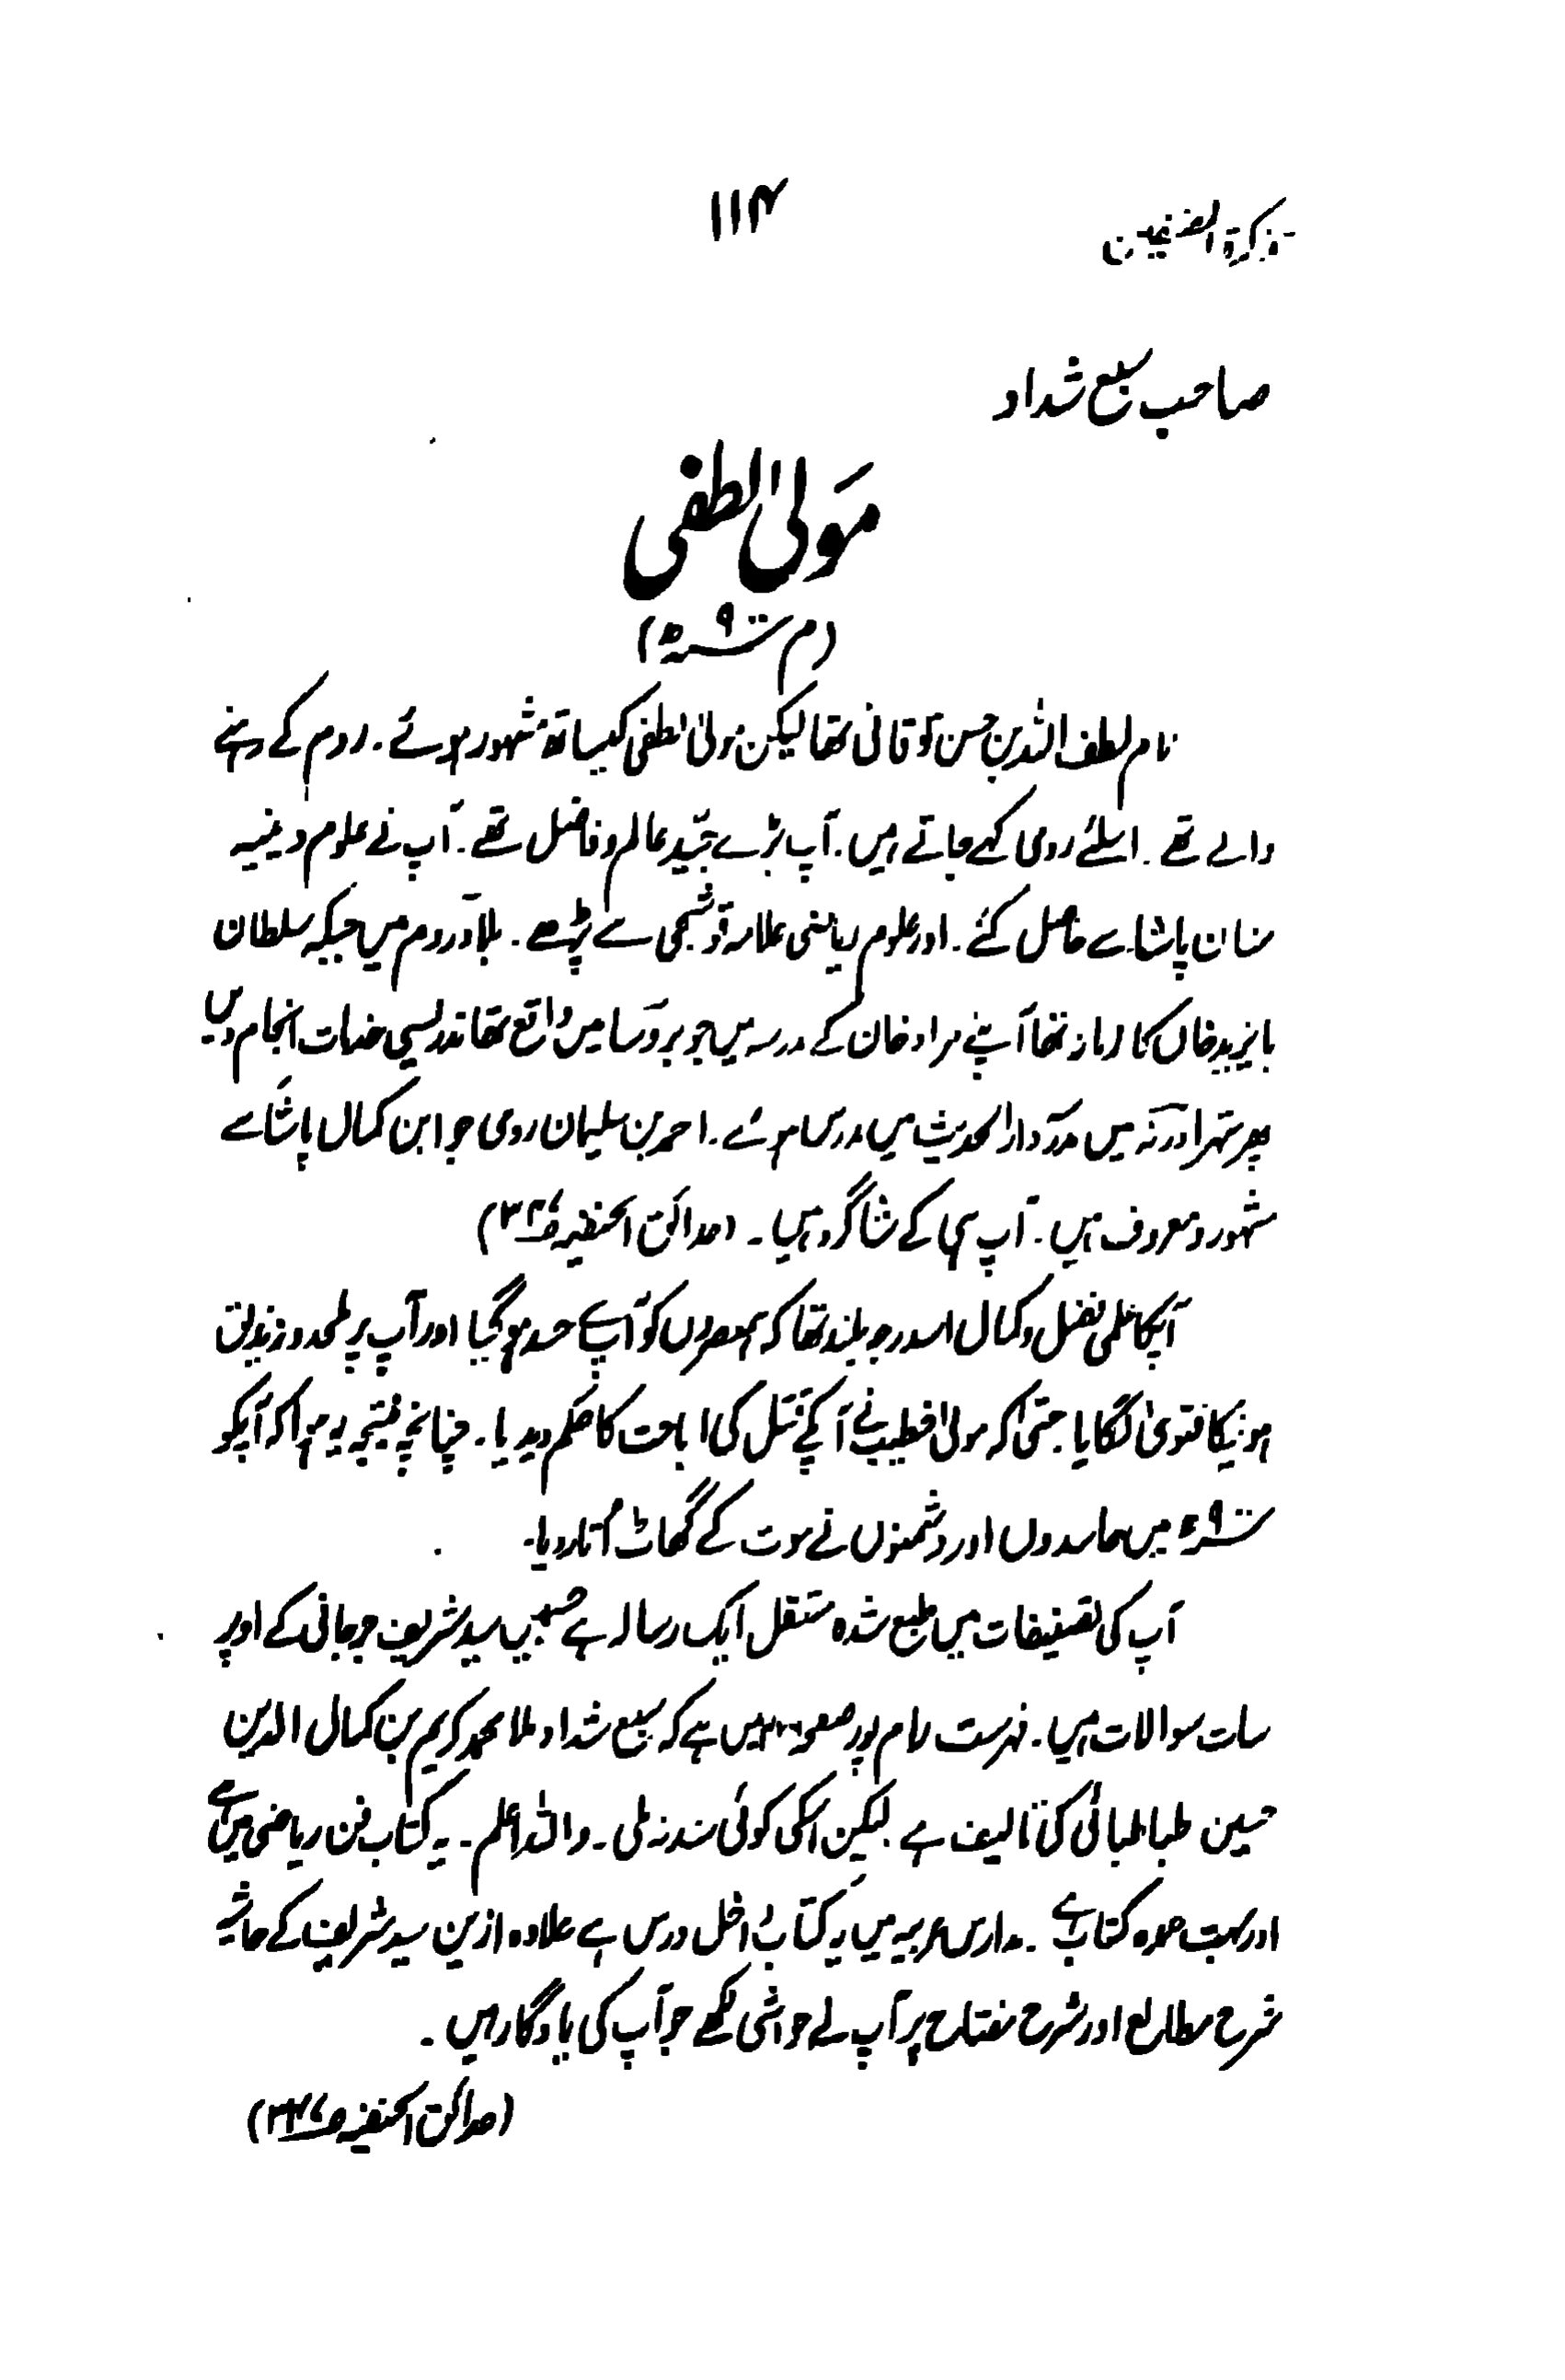 تذکرۃ المصنفین
۱۱۴
صاحب سبع شداد
مَولیٰ لطفی
(م ۹۰۰ھ)
نام لطف اللہ بن حسن توقانی تھا لیکن مولیٰ لطفی کیساتھ مشہور ہوئے۔ روم کے رہنے
والے تھے۔ اسلئے رومی کہے جاتے ہیں۔ آپ بڑے جیّد عالم و فاضل تھے۔ آپ نے علوم دینیہ
سنان پاشا سے حاصل کئے۔ اور علوم ریاضی علامہ قوشجی سے پڑھے۔ بلاد روم میں جبکہ سلطان
بایزید خاں کا زمانہ تھا آپنے مراد خان کے مدرسہ میں جو بروسا میں واقع تھا تدریسی خدمات انجام دیں
پھر شہر ادرنہ میں مدرسہ دار الحدیث میں مدرس ہوئے۔ احمد بن سلیمان رومی جو ابن کمال پاشا سے
مشہور و معروف ہیں۔ آپ ہی کے شاگرد ہیں۔ (حدائق الحنفیہ ص
آپکا علمی فضل و کمال اسدرجہ بلند تھا کہ ہمعصروں کو آپسے حسد ہو گیا اور آپ پر ملحد و زندیق
ہونیکا فتویٰ لگایا حتیٰ کہ مولیٰ خطیب نے آپکے قتل کی اباحت کا حکم دیدیا۔ چنانچہ نتیجہ یہ ہوا کہ آپکو
۹۰۰ھ میں حاسدوں اور دشمنوں نے موت کے گھاٹ اُتار دیا۔
آپ کی تصنیفات میں طبع شدہ مستقل ایک رسالہ ہے جسمیں سید شریف جرجانی کے اوپر
سات سوالات ہیں۔ فہرست رام پور صفحہ میں ہے کہ سبع شداد ملا محمد کریم بن کمال الدین
حسین طباطبائی کی تالیف ہے لیکن اسکی کوئی سند نہ ملی۔ واللہ اعلم۔ یہ کتاب فن ریاضی میں ہے
اور بہت عمدہ کتاب ہے۔ مدارس عربیہ میں یہ کتاب داخل درس ہے علاوہ ازین سید شریف کے حاشیہ
شرح مطالع اور شرح مفتاح پر آپ نے حواشی لکھے جو آپ کی یادگار ہیں۔
(حدائق الحنفیہ ص